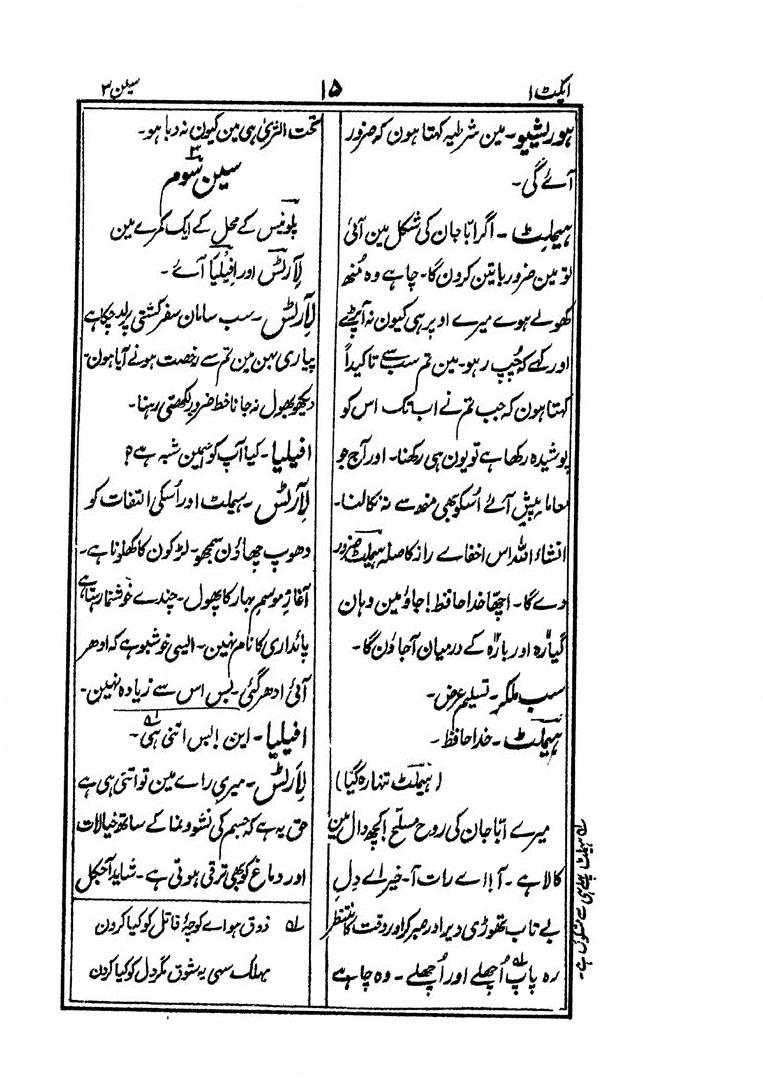 ایکٹ ا
۱۵
سین ۳
ہوریشیو۔ مین شرطیہ کہتا ہون کہ ضرور
آئے گی۔
ہیملٹ ۔ اگر ابّا جان کی شکل مین آئی
تو مین ضرور باتین کرون گا۔ چاہے وہ مُنھ
کھولے ہوے میرے اوپر ہی کیون نہ آپڑے
اور کہے کہ چُپ رہو۔ مین تم سب سے تاکیداً
کہتا ہون کہ جب تم نے اب تک اس کو
پوشیدہ رکھا ہے تو یون ہی رکھنا۔ اور آج جو
معاملہ پیش آئے اُسکو بھی منھ سے نہ نکالنا۔
انشاء اللہ اس اخفاے راز کا صلہ ہیملٹ ضرور
دے گا۔ اچھا خدا حافظ! جاؤ مین وہان
گیارہ اور بارہ کے درمیان آجاؤن گا۔
سب ملکر۔ تسلیم عرض۔
ہیملٹ۔ خدا حافظ۔
(ہیملٹ تنہا رہ گیا)
میرے ابّا جان کی روح مسلّح! کچھ دال مین
کالا ہے۔ آ! اے رات آ۔ خیر اے دلِ
بے تاب تھوڑی دیر اور صبر کر اور وقت کا منتظر
رہ پاپ اُچھلے اور اُچھلے ۔ وہ چاہے
لہ ہیملٹ پہلے ہی سے مشکوک ہے۔
تحت الثریٰ ہی مین کیون نہ دبا ہو۔
سین سوم ۳
پلونیس کے محل کے ایک کمرے مین
لآرٹس اور افیلیا آے ۔
لآرٹس ۔ سب سامان سفر کشتی پر لد چکا ہے
پیاری بہن مین تم سے رخصت ہونے آیا ہون۔
دیکھو بھول نہ جانا خط ضرور لکھتی رہنا۔
افیلیا۔ کیا آپ کو ہمین شبہ ہے؟
لآرٹس ۔ ہیملٹ اور اُسکی التفات کو
دھوپ چھاؤن سمجھو۔ لڑکون کا کھلونا ہے۔
آغازِ موسمِ بہار کا پھول۔ چندے خوشنما رہتا ہے
پائداری کا نام نہین۔ ایسی خوشبو ہے کہ ادھر
آئی ادھر گئی۔ بس اس سے زیادہ نہین۔
افیلیا۔ این! بس اتنی ہی۔ لہ
لآرٹس۔ میری راے مین تو اتنی ہی ہے
حق یہ ہے کہ جسم کی نشو و نما کے ساتھ خیالات
اور دماغ کو بھی ترقی ہوتی ہے۔ شاید آجکل
لہ ذوق ہواے کوچۂ قاتل کو کیا کرون
مہلک سہی یہ شوق مگر دل کو کیا کرون